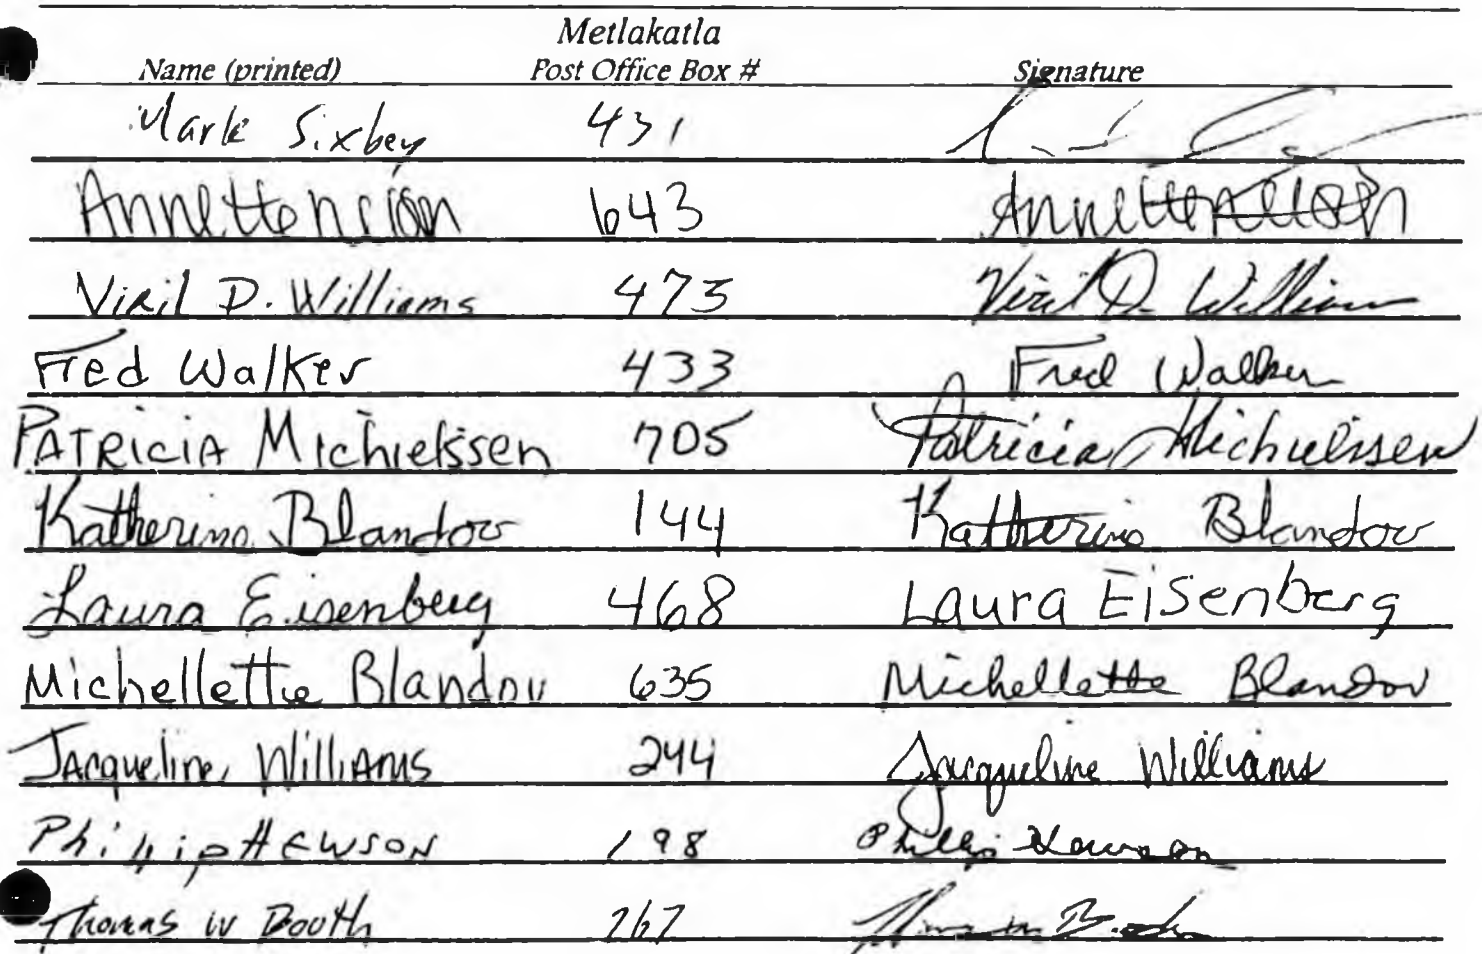 Metlakatla
Name (printed) Post Office Box # Signature
Mark Sixbey 431
Annette nelson 643 Annette nelson
Viril D. Williams 473 Viril D. Williams
Fred Walker 433 Fred Walker
PATRICIA Michielssen 705 Patricia Michielssen
Katherine Blandov 144 Katherine Blandov
Laura Eisenberg 468 Laura Eisenberg
Michellette Blandov 635 Michellette Blandov
Jacqueline Williams 244 Jacqueline Williams
Phillip HEWSON 198 Phillip Hewson
Thomas W Booth 767